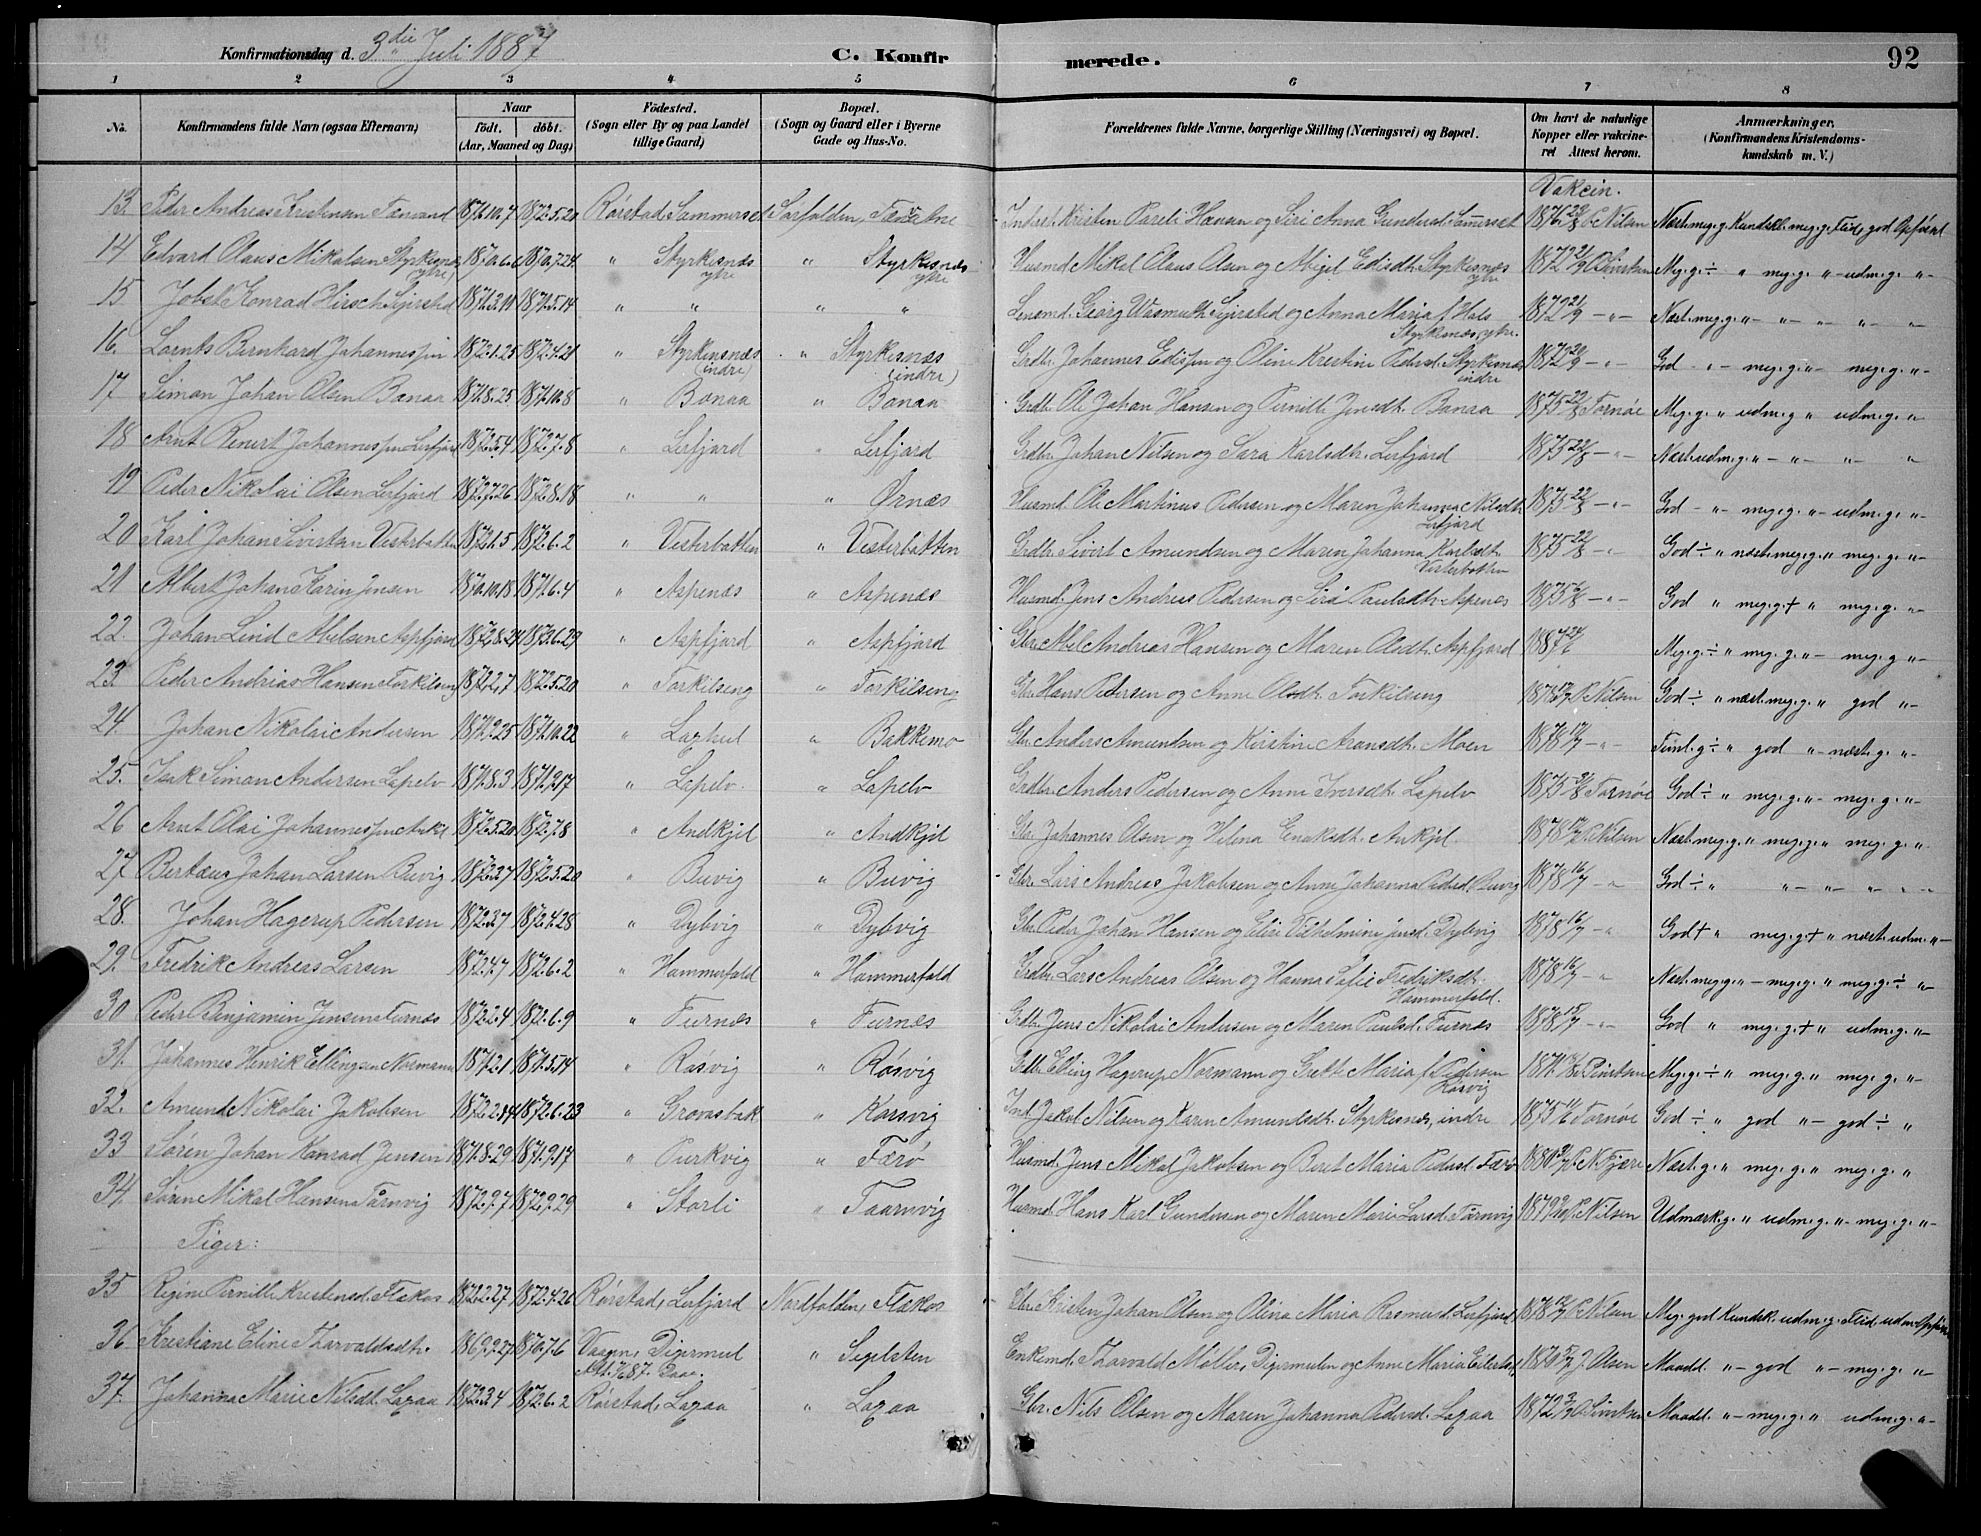 Konfirmationsdag d. 3die Juli 1887
C. Konfirmerede.
92
1 2 3 4 5 6 7 8
No. Konfirmandens fulde Navn (ogsaa Efternavn) Naar födt. döbt. (Aar, Maaned og Dag) Födested. (Sogn eller By og paa Landet tillige Gaard) Bopæl. (Sogn og Gaard eller i Byerne Gade og Hus-No. Forældrenes fulde Navne, borgerlige Stilling (Næringsvei) og Bopæl. Om havt de naturlige Kopper eller vakcineret Attest herom. Anmærkninger. (Konfirmandens Kristendomskundskab m.V.)
Vakcin.
13. Peder Andreas Kristensen 1871.10.7 1872.5.20 Rörstad Sommerset Sörfolden, Kristen Pareli Hansen og Siri Anna Gundersd. Sommerset P. Nilsen Næst. meg. g. Kundsk. meg. g. Flid, god Opförsel
14 Edvard Olaus Mikalsen Styrkesnes ytre 1870.6.6 1870.7.24 " Styrkesnæs ytre " Styrkesnæs ytre Husmd. Mikel Olaus Olsen og Abigel Edisdtr. Styrkesnæs ytre 1872 21/9 Meg. g. ÷ " meg. g. " udm. g. "
15 Jobst Konrad Hirsch Sejersted 1871.3.11 1871.5.14 " " " " Lensmd. Georg Wasmuth Sejersted og Anna Maria f. Hals Styrkesnæs, ytre. 1872 21/9 Næst. meg. g. " " " " "
16. Lornts Bernhard Johannessen 1872.1.25 1872.4.21 " Styrkesnæs (indre) " Styrkesnæs (indre) Grdbr. Johannes Edissen og Oline Kristine Pedersd. Styrkesnæs indre God " meg. g. " meg. g. "
17 Simon Johan Olsen Bonaa 1871.8.25 1871.10.8 " Bonaa " Bonaa Grdbr. Ole Johan Hansen og Pernille Jensdtr. Bonaa 1875 22/8 Tornöe Meg. g. " udm. g. " udm. g. "
18 Arnt Renert Johannessen Lerfjord 1872.5.4 1872.7.8 " Lerfjord " Lerfjord Grdbr. Johan Nilsen og Sara Karlsdtr. Lerfjord 1875 22/8 Næst. udm. g. " " " "
19 Peder Nikolai Olsen Lerfjord 1872.7.26 1872.8.18 " " " Ørnæs Husmd. Ole Martinus Pedersen og Maren Johanna Nilsdtr. Lerfjord 1875 22/8 God " meg. g. " udm. g. "
20 Karl Johan Sivertsen Vesterbotten 1872.1.5 1872.6.2 " Vesterbotten " Vesterbotten Grdbr. Sivert Amundsen og Maren Johanna Karlsdtr. Vesterbotten 1875 22/8 God ÷ " næst. meg. g. " meg. g. "
21 Albert Johan Karin Jensen 1870.10.18 1871.6.4 " Aspenæs " Aspenæs Husmd. Jens Andreas Pedersen og Siri Paulsdtr. Aspenæs God " meg. g. + " meg. g. "
22. Johan Lind Abelsen Aspfjord 1872.8.24 1873.6.29 " Aspfjord " Aspfjord Gbr. Abel Andreas Hansen og Maren Olsdtr. Aspfjord 1887 Meg. g. ÷ " meg. g. " meg. g. "
23. Peder Andreas Hansen Torkilseng 1872.2.7 1872.5.20 " Torkilseng " Torkilseng Gbr. Hans Pedersen og Anne Olsdtr. Torkilseng P. Nilsen God ÷ " næst. meg. g. " god "
24. Johan Nikolai Andersen 1871.9.25 1871.10.22 " Laghul " Bakkemo Gbr. Anders Amundsen og Kirstine Aronsdtr. Moen 1878 17/7 Teml. g. ÷ " god " næst. g. "
25. Isak Simon Andersen Lapelv 1871.8.3 1871.9.17 " Lapelv " Lapelv Grdbr. Anders Pedersen og Anne Iversdtr. Lapelv Tornöe God ÷ " meg. g. " meg. g. "
26 Arnt Olai Johannessen Ankl 1872.5.20 1872.7.8 " Andkjil " Andkjil Gbr. Johannes Olsen og Helena Enoksdtr. Ankjil 1878 17/7 P. Nilsen Næst. meg. g. " meg. g. " meg. g. "
27 Berteus Johan Larsen Buvig 1872.3.7 1872.5.20 " Buvig " Buvig Gbr. Lars Andreas Jakobsen og Anne Johanna Pedersd. Buvig 1878 16/7 God ÷ " " " " "
28. Johan Hagerup Pedersen 1872.3.7 1872.4.28 " Dybvig " Dybvig Gbr. Peder Johan Hansen og Elise Vilhelmine Jensd. Dybvig 1878 16/7 God + " meg. g. + " næst. udm. "
29. Fredrik Andreas Larsen 1872.4.7 1872.6.2 " Hammerfald " Hammerfald Grdbr. Lars Andreas Olsen og Hanna Sofie Fredriksdtr. Hammerfald. 1878 16/7 Næst. meg. g. " meg. g. " meg. g. ÷ "
30 Peder Benjamin Jensen Furnæs 1872.2.4 1872.6.9 " Furnæs " Furnæs Grdbr. Jens Nikolai Andersen og Maren Paulsd. Furnæs 1878 15/7 God " meg. g. + " udm. g. "
31. Johannes Henrik Ellingsen Normann 1871.2.1 1871.5.14 " Rösvig " Rösvig Grdbr. Elling Hagerup Normann og Grette Maria f. Pedersen Rösvig Meg. g. ÷ " meg. g. " meg. g. "
32. Amund Nikolai Jakobsen 1872.2.14 1872.6.23 " Grovasbak " Korsvig Ind. Jakob Nilsen og Karen Amundsdtr. Styrkesnes, indre Tornöe God ÷ " god " god ÷ "
33 Sören Johan Konrad Jensen 1871.8.29 1871.9.17 " Purkvig " Færö Husmd. Jens Mikal Jakobsen og Beret Maria Pedersd. Færö Næst. g. " meg. g. " meg. g. "
34. Sören Mikal Hansen Tårnvig 1872.9.7 1872.9.29 " Storli " Taarnvig Husmd. Hans Karl Gundersen og Maren Marie Larsd. Tårnvig P. Nilsen Udmærk. g. " udm. g. " meg. g. "
Piger:
35 Regine Pernille Kristensd. Flakos 1872.2.27 1872.4.26 Rörstad, Lerfjord Nordfolden, Flakos Gbr. Kristen Johan Olsen og Olina Maria Rasmusd. Lerfjord P. Nilsen Meg. god Kundsk. udm. g. Flid, udm. Opför.
36 Kristiane Eline Thorvaldsdtr. 1869.7.27 1870.7.6 Vaagen, Digermul " Segelsten Enkemd. Thorvald Möller, Digermulen og Anne Maria Eilertsd. J. Olsen Maadel. " god " meg. g. "
37. Johanna Marie Nilsdt. Laxaa 1872.3.4 1872.6.2 Rörstad, Laxaa " Laxaa Gbr. Nils Olsen og Maren Johanna Pedersd. Laxaa 1872 Maadel. " meg. g. " udm. g. "